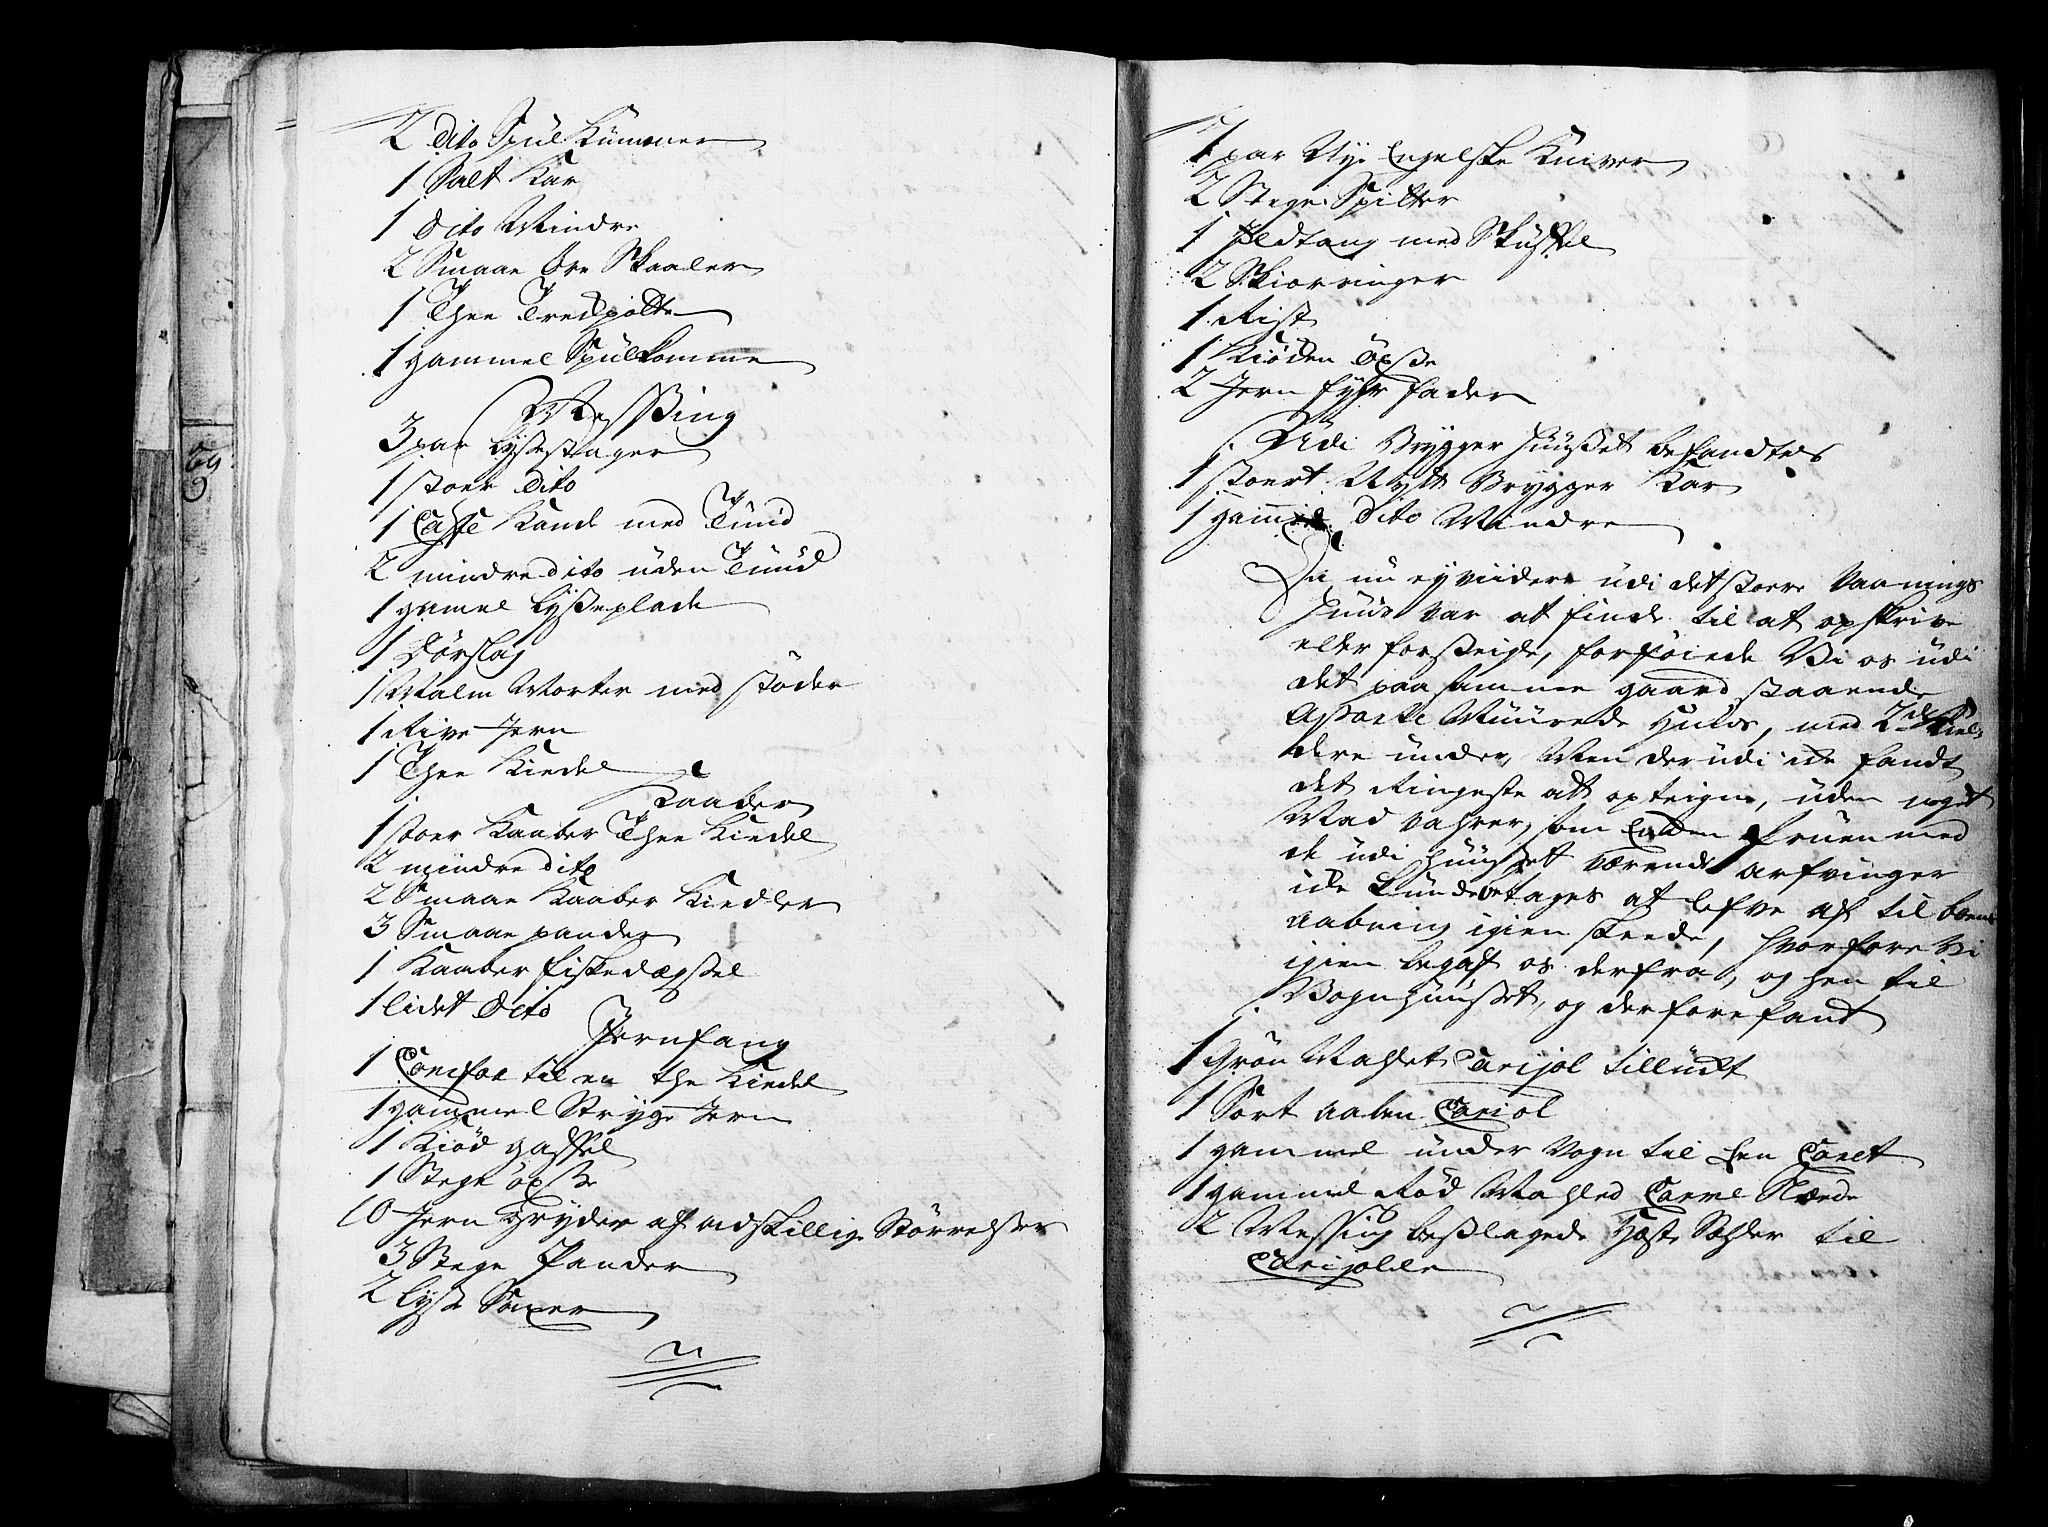 2 dito Spül Kummer
1 Salt Kar
1 dito Mindre
2 Smaae Øre Skaaler
1 Thee Tredpotte
1 gammel Spülkomme
Messing
3 par Lysestager
1 stoer dito
1 Caffe Kande med Tüüd
2 mindre dito uden Tüüd
1 gamel Lysseplade
1 Dørslag
1 Malm Morter med støder
1 Rive Jern
1 Thee Kiedel
Kaaber
1 stoer Kaaber Thee Kiedel
2 mindre dito
2 Smaae Kaaber Kiedler
3 Smaae pander
1 Kaaber fiskedæxsel
1 lidet dito
Jernfang
1 Comfoe til en the Kiedel
1 gammel Stryge Jern
1 Kiød gaffel
1 Stege öxse
10 Jern Gryder af adskillig Størrelser
3 Stege Pander
2 Lyse Saxer
69
1 par Nye Engelske Kniver
2 Stege Spitter
1 Ildtang med Sküffel
2 Skiorringer
1 Rist
1 Kiöden Öxse
2 Jern fyhr fader
Udi Brygger Hüüset befandtes
1 stoert Nytt Brygger Kar
1 gammel dito Mindre
Da nu ey viidere udi det stoere Vaanings
Huus var at finde til at opskrive
eller forseigle, forføiede Vi os udi
det paa samme gaard staaende
Aparte Müürede Huus, med 2de Kiel-
dere under, Men derudi icke fandt
det Ringeste att opteigne, uden noget
Mad Vahrer, som Enken Fruen med
de udi Hüüset værende Arfvinger
icke kunde betages at lefve af til boens
aabning igien skeede, hvorfore Vi
igien begaf os derfra, og hen til
Vognhüüset, og der forefant
1 Grøn Mahlet Carijol tillückt
1 Sort aaben Cariol
1 gammel under Vogn til en Caret
1 gammel Rød Mahled Carml Slæde
2 Messing beslagede Heste Sehler til
Carijoler